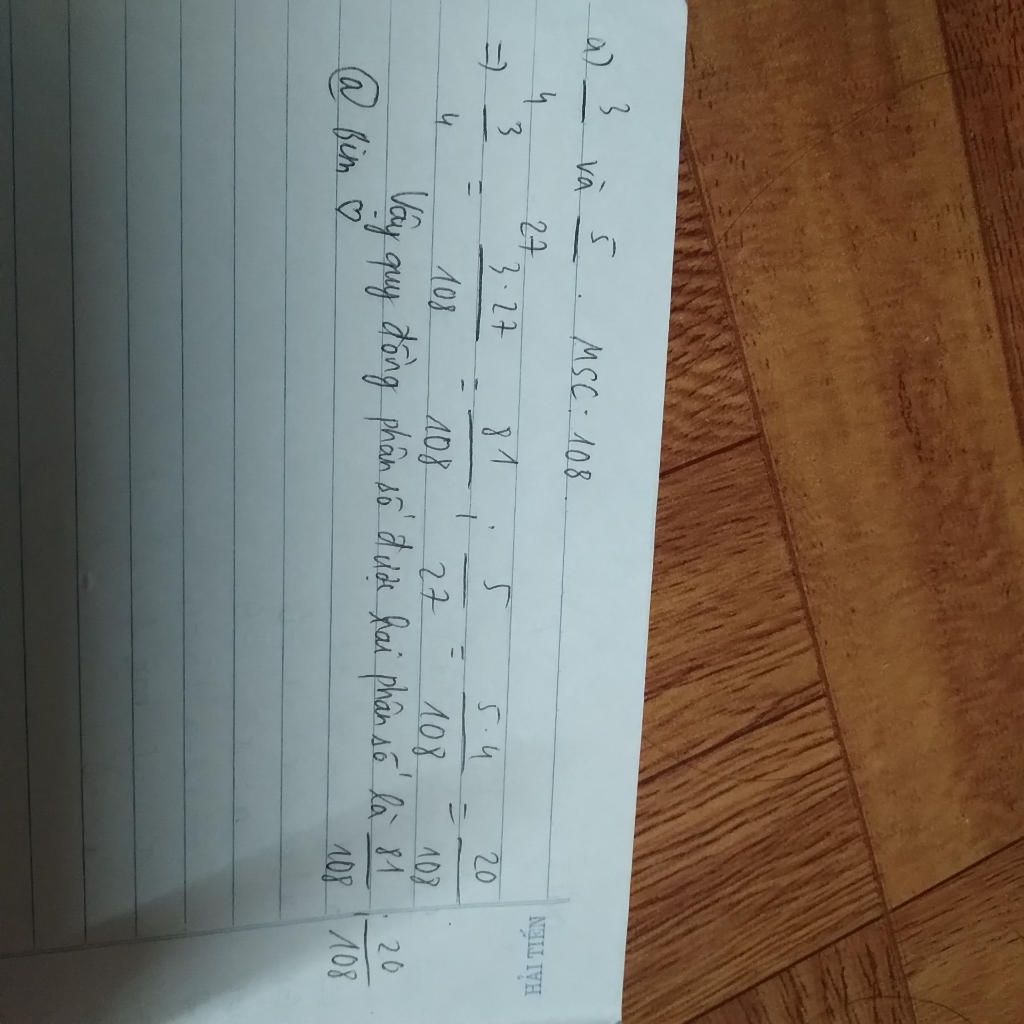 HẢI TIẾN
a) 3/4 và 5/27. MSC. 108.
=) 3/4 = 3.27/108 = 81/108, 5/27 = 5.4/108 = 20/108.
Vậy quy đồng phân số được hai phân số là 81/108, 20/108
@ Bim ♡